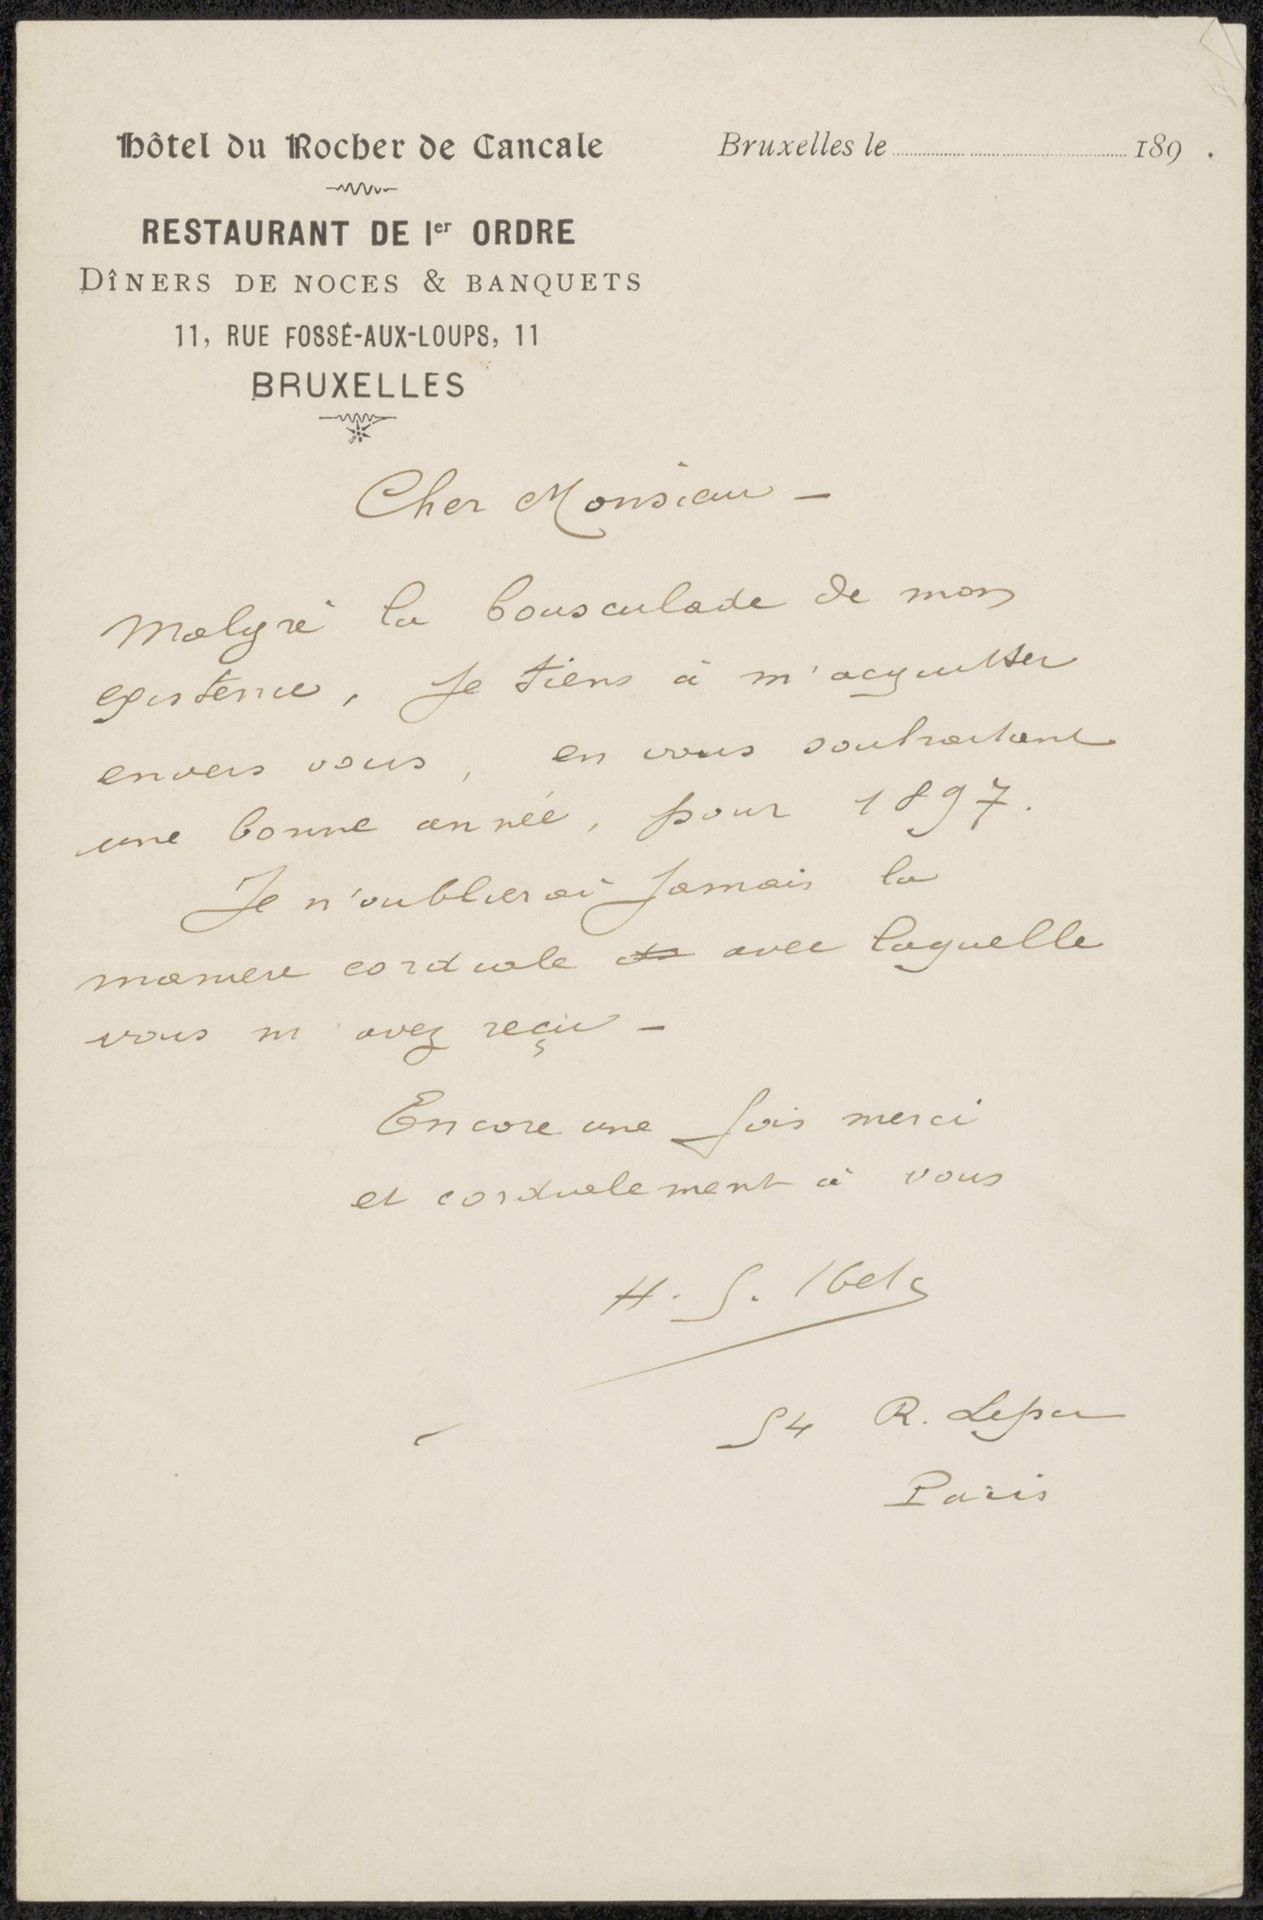 Hôtel du Rocher de Cancale
Bruxelles le 189 .
RESTAURANT DE Ier ORDRE
DÎNERS DE NOCES & BANQUETS
11, RUE FOSSÉ-AUX-LOUPS, 11
BRUXELLES
Cher Monsieur –
Malgré la bousculade de mon
existence, je tiens à m'acquitter
envers vous, en vous souhaitant
une bonne année, pour 1897.
Je n'oublierai jamais la
manière cordiale avec laquelle
vous m'avez reçu –
Encore une fois merci
et cordialement à vous
H. G. Ibels
54 R. Lepic
Paris